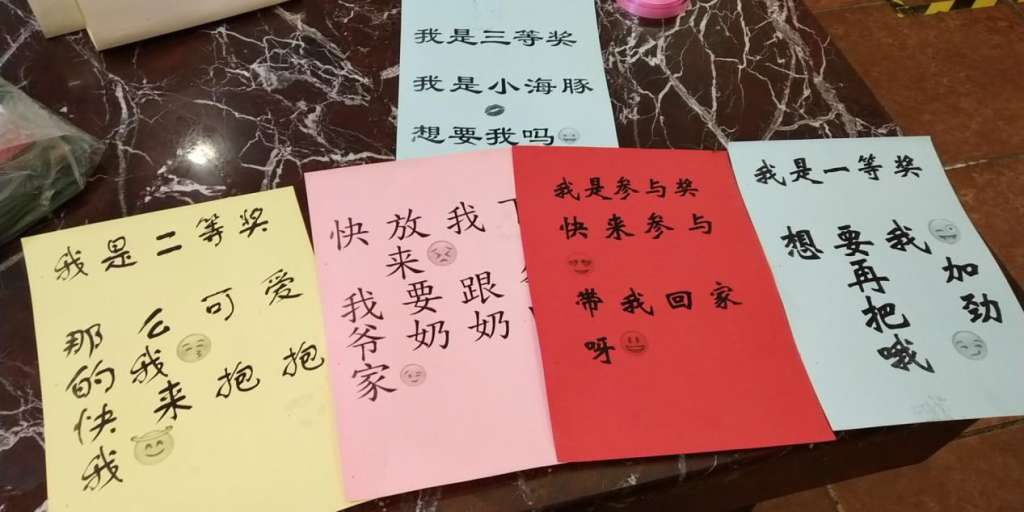 我是三等奖
我是小海豚
想要我吗
我是二等奖
那么可爱
的我
快来抱抱
我
快放我
来
我要跟
爷奶奶
家
我是参与奖
快来参与
带我回家
呀
我是一等奖
想要我
再加
把劲
哦